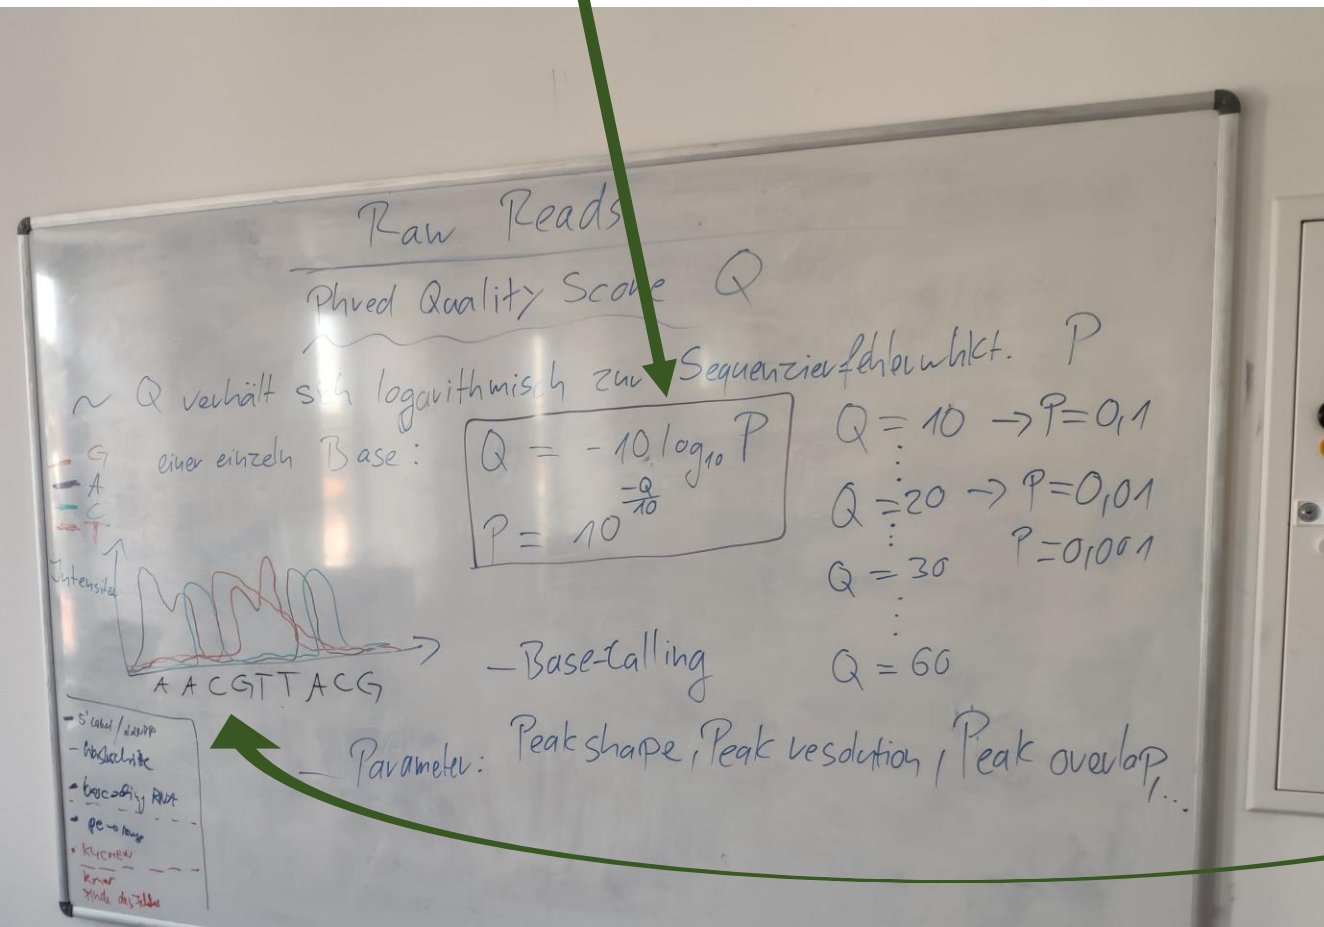 Raw Reads
Phred Quality Score Q
~ Q verhält sich logarithmisch zur Sequenzierfehlerwhkt. P
einer einzeln Base:
Q = -10 log₁₀ P
P = 10^(-Q/10)
Q = 10 → P=0,1
Q = 20 → P=0,01
Q = 30 P=0,001
Q = 60
G
A
C
T
Intensität
A A C G T T A C G
- Base-Calling
- Parameter: Peak shape, Peak resolution, Peak overlap, ...
- 5' Label /
RNA
KUCHEN